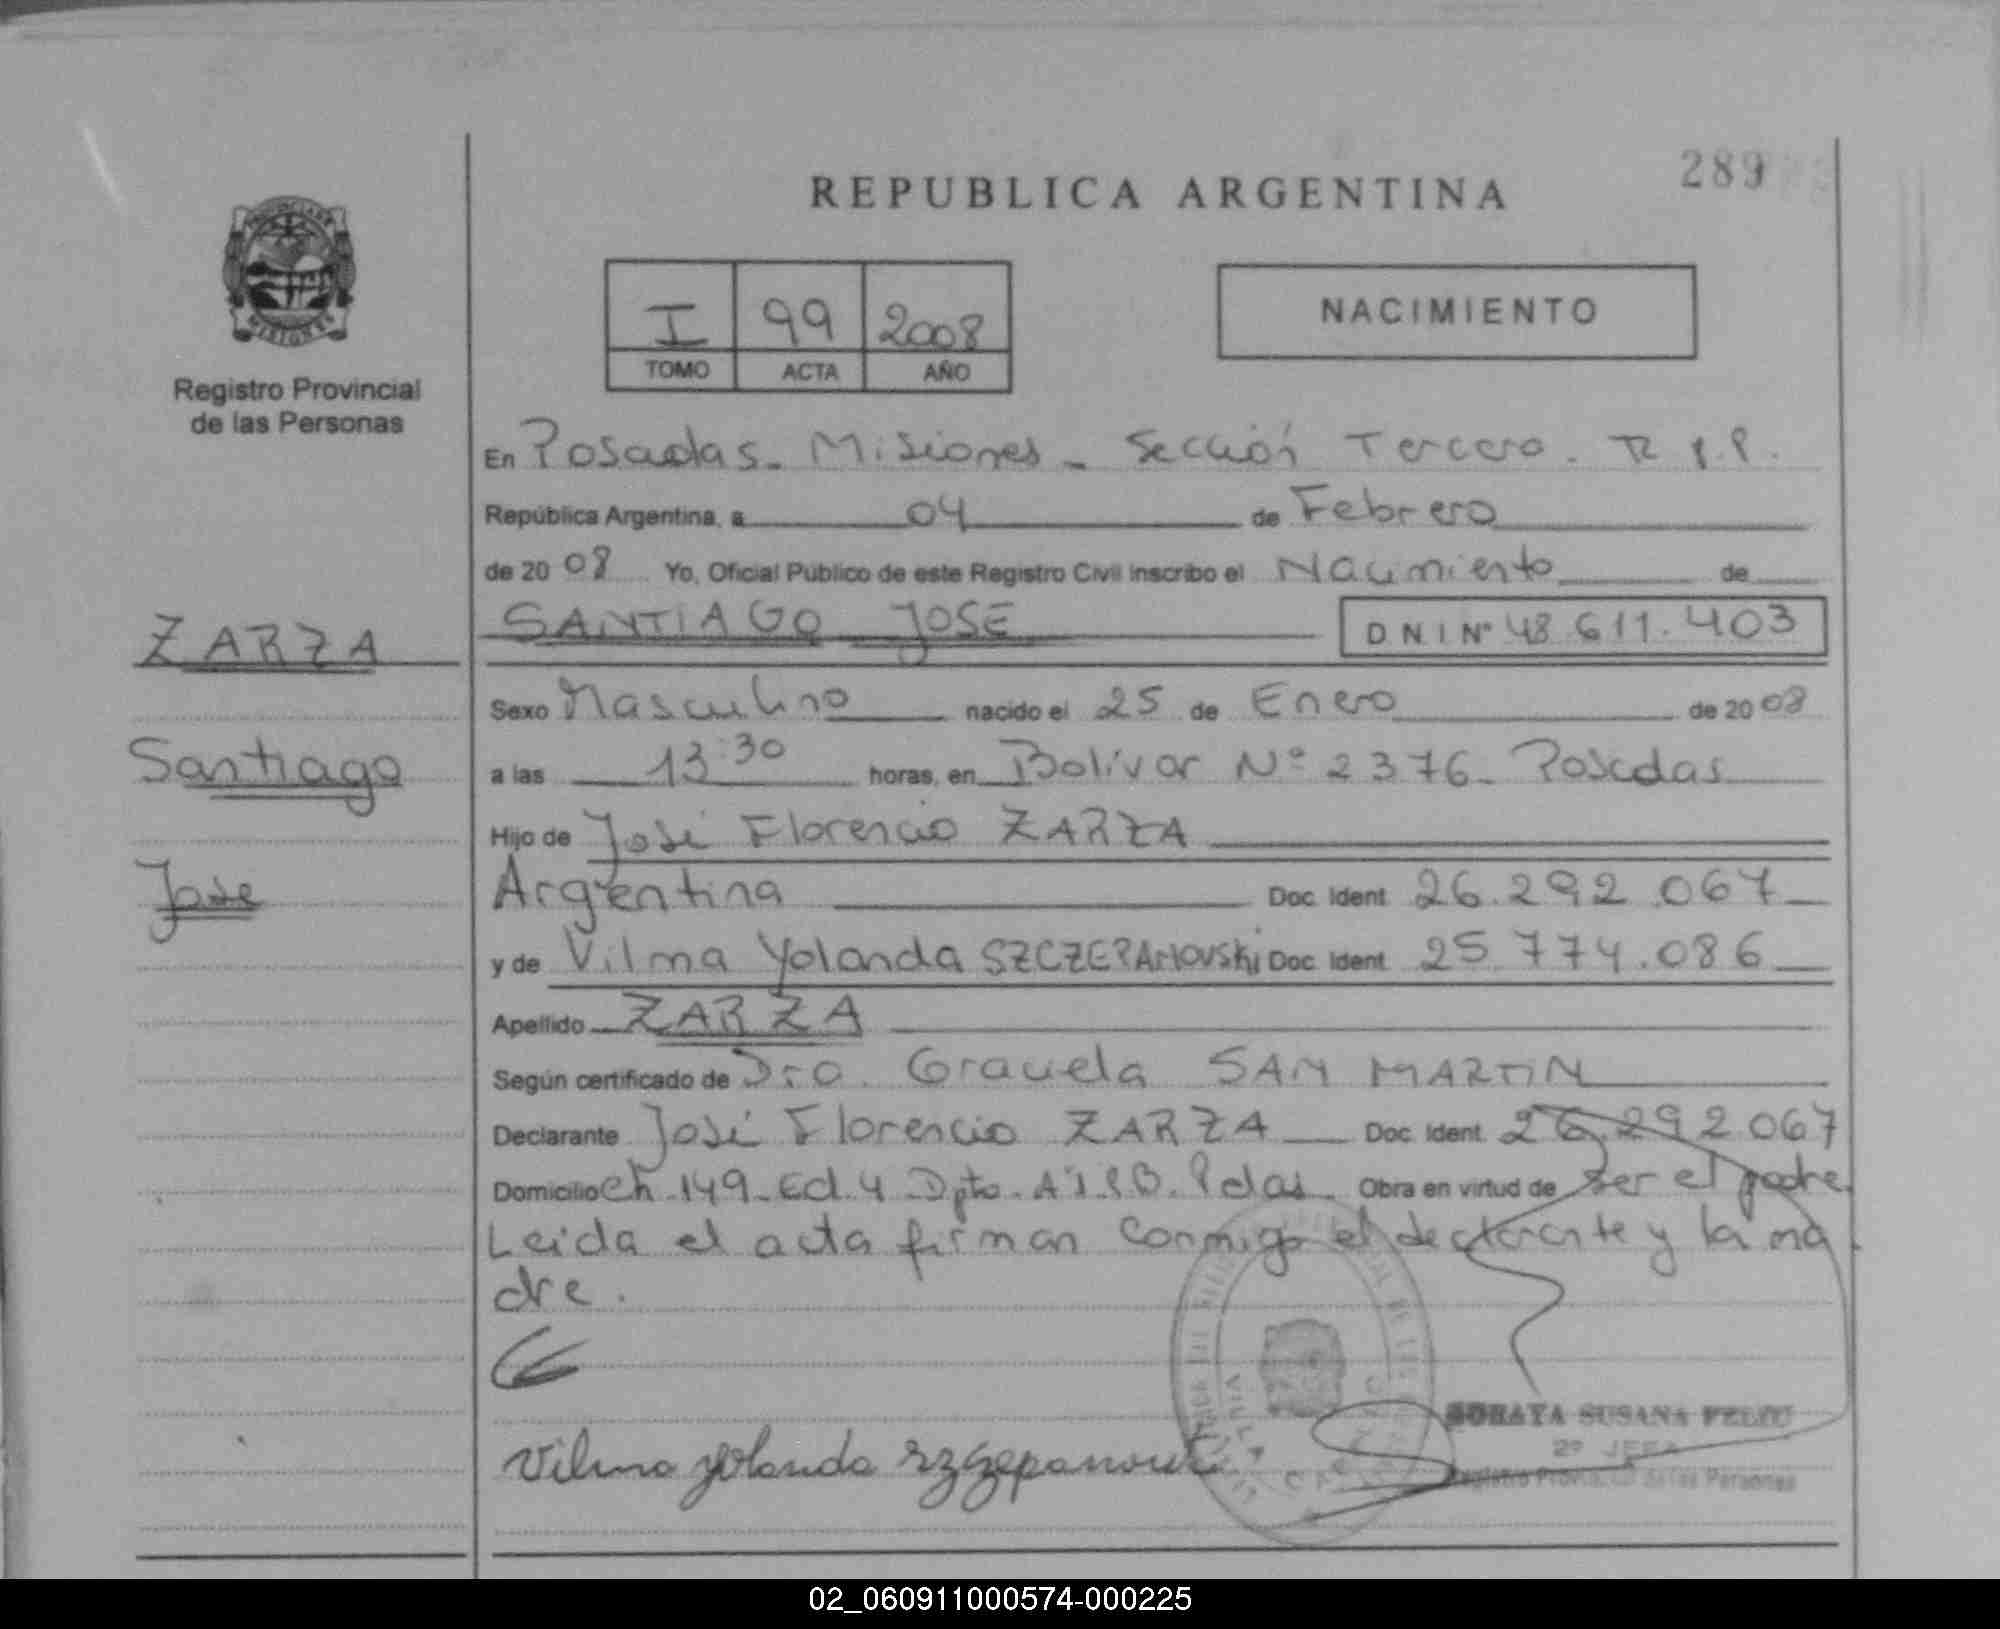 REPUBLICA ARGENTINA
289
I 99 2008
TOMO ACTA AÑO
NACIMIENTO
Registro Provincial
de las Personas
En Posadas - Misiones - Sección Tercera. R.P.P.
República Argentina, a 04 de Febrero
de 2008 Yo, Oficial Público de este Registro Civil inscribo el Nacimiento de
ZARZA
SANTIAGO JOSE DNI Nº 48.611.403
Sexo Masculino nacido el 25 de Enero de 2008
Santiago
a las 13:30 horas, en Bolívar Nº 2376 - Posadas
Hijo de José Florencio ZARZA
Jose
Argentina Doc. Ident. 26.292.067
y de Vilma Yolanda SZCZEPANOVSKi Doc. Ident. 25.774.086
Apellido ZARZA
Según certificado de Dra. Graciela SAN MARTIN
Declarante José Florencio ZARZA Doc. Ident. 26.292.067
Domicilio Ch. 149 - Ed. 4 Dpto. Pdas. Obra en virtud de Ser el padre.
Leida el acta firman conmigo el declarante y la ma
dre.
Vilma Yolanda
SORAYA SUSANA FELIU
2º JEFA
Registro Provincial de las Personas
02_060911000574-000225